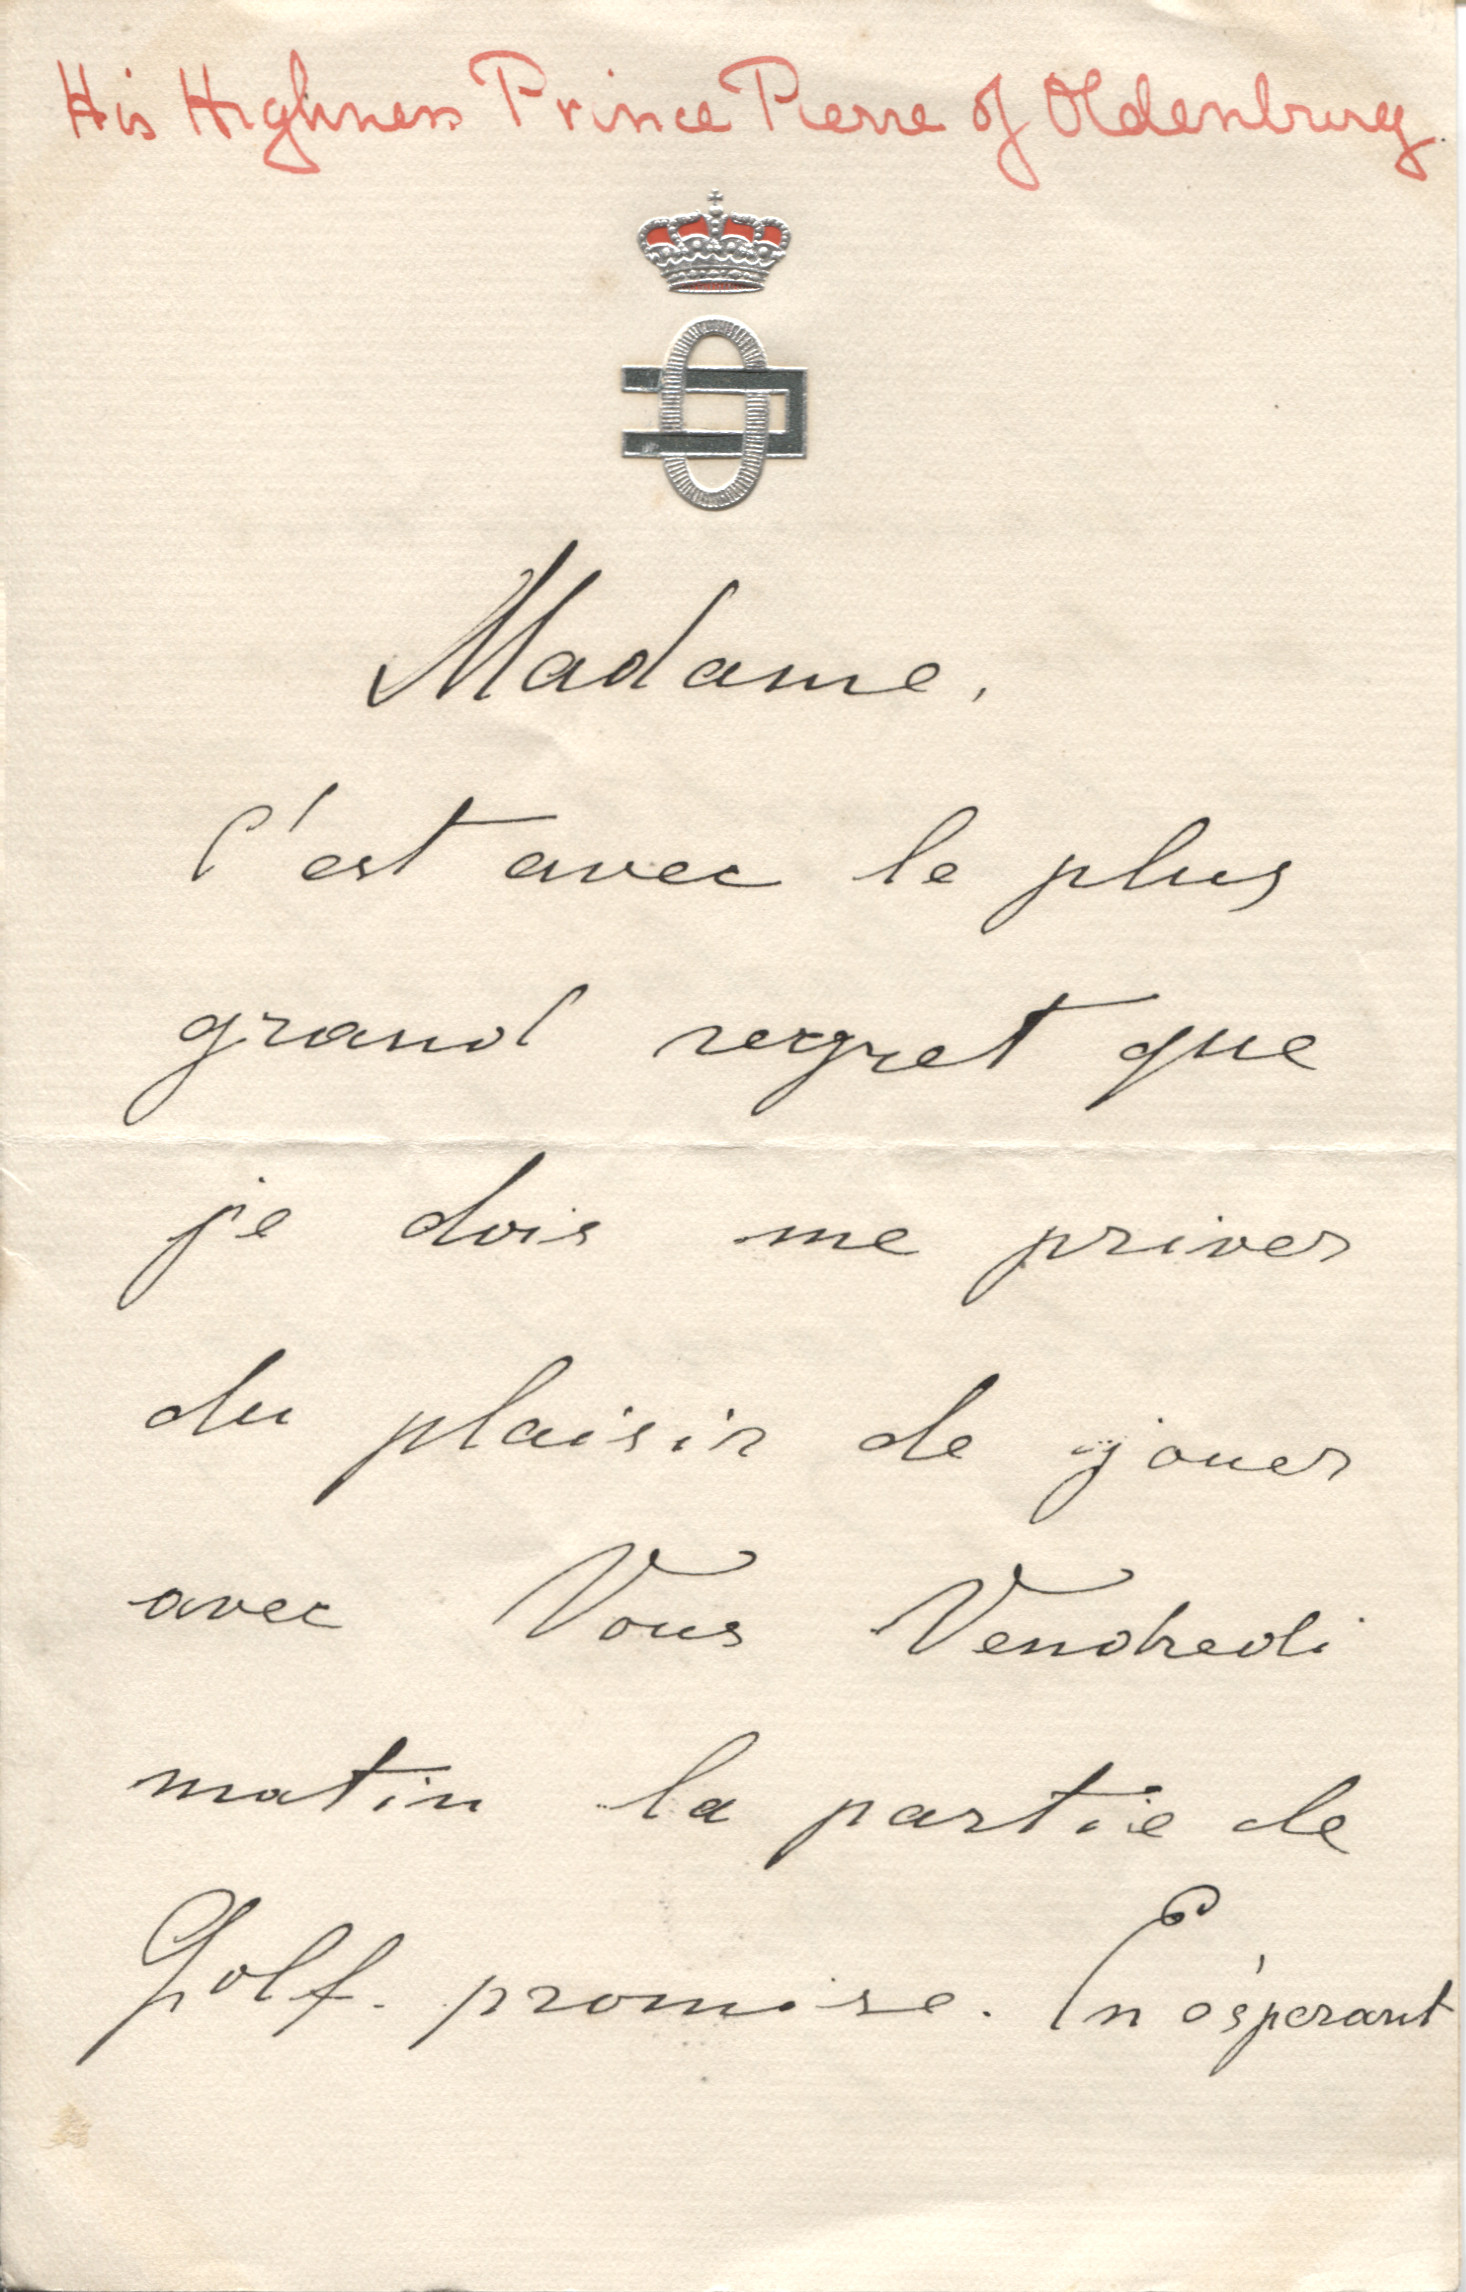 His Highness Prince Pierre of Oldenburg.
Madame,
C'est avec le plus
grand regret que
je dois me priver
du plaisir de jouer
avec Vous Vendredi
matin la partie de
Golf. promise. En éspérant